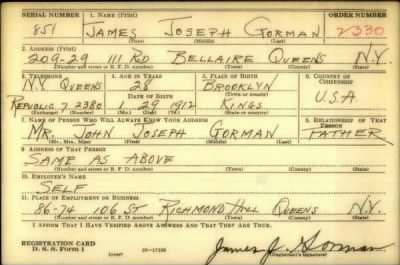 SERIAL NUMBER 1. NAME (Print) ORDER NUMBER
851 JAMES JOSEPH GORMAN 2330
(First) (Middle) (Last)
2. ADDRESS (Print)
209-29 111 RD BELLAIRE QUEENS N.Y.
(Number and street or R. F. D. number) (Town) (County) (State)
3. TELEPHONE 4. AGE IN YEARS 5. PLACE OF BIRTH 6. COUNTRY OF CITIZENSHIP
N.Y. QUEENS 28 BROOKLYN
(Town or county)
REPUBLIC 7 2380 1 29 1912 KINGS U.S.A
(Exchange) (Number) (Mo.) (Day) (Yr.) (State or country)
7. NAME OF PERSON WHO WILL ALWAYS KNOW YOUR ADDRESS 8. RELATIONSHIP OF THAT PERSON
MR. JOHN JOSEPH GORMAN FATHER
(Mr., Mrs., Miss) (First) (Middle) (Last)
9. ADDRESS OF THAT PERSON
SAME AS ABOVE
(Number and street or R. F. D. number) (Town) (County) (State)
10. EMPLOYER'S NAME
SELF
11. PLACE OF EMPLOYMENT OR BUSINESS
86-74 106 ST. RICHMOND HILL QUEENS N.Y.
(Number and street or R. F. D. number) (Town) (County) (State)
I AFFIRM THAT I HAVE VERIFIED ABOVE ANSWERS AND THAT THEY ARE TRUE.
REGISTRATION CARD
D. S. S. Form 1 (over) James J. Gorman
(Registrant's signature)